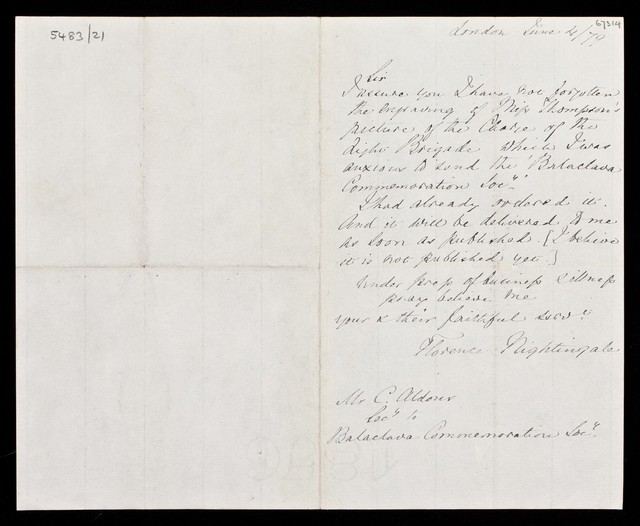 5483/21
67314
London June 4/79
Sir
I assure you I have not forgotten
the engraving of Miss Thompson's
picture of the Charge of the
Light Brigade which I was
anxious to send the 'Balaclava
Commemoration Socy.'
I had already ordered it.
And it will be delivered to me
as soon as published. [I believe
it is not published yet.]
Under press of business & illness
pray believe me
your & their faithful servt.
Florence Nightingale
Mr. C. Aldous
Secy to
Balaclava Commemoration Socy.